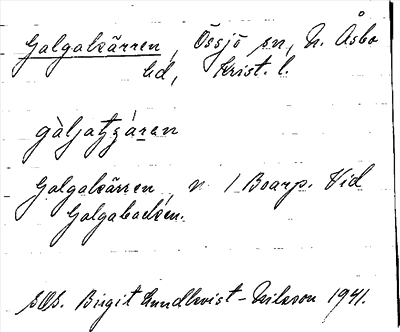 Galgakärren, Össjö sn, N. Åsbo
hd, Krist. l.
gàljatʒáren
Galgakärren, n / Boarp. Vid
Galgabacken.
Birgit Lundkvist-Nilsson 1941.